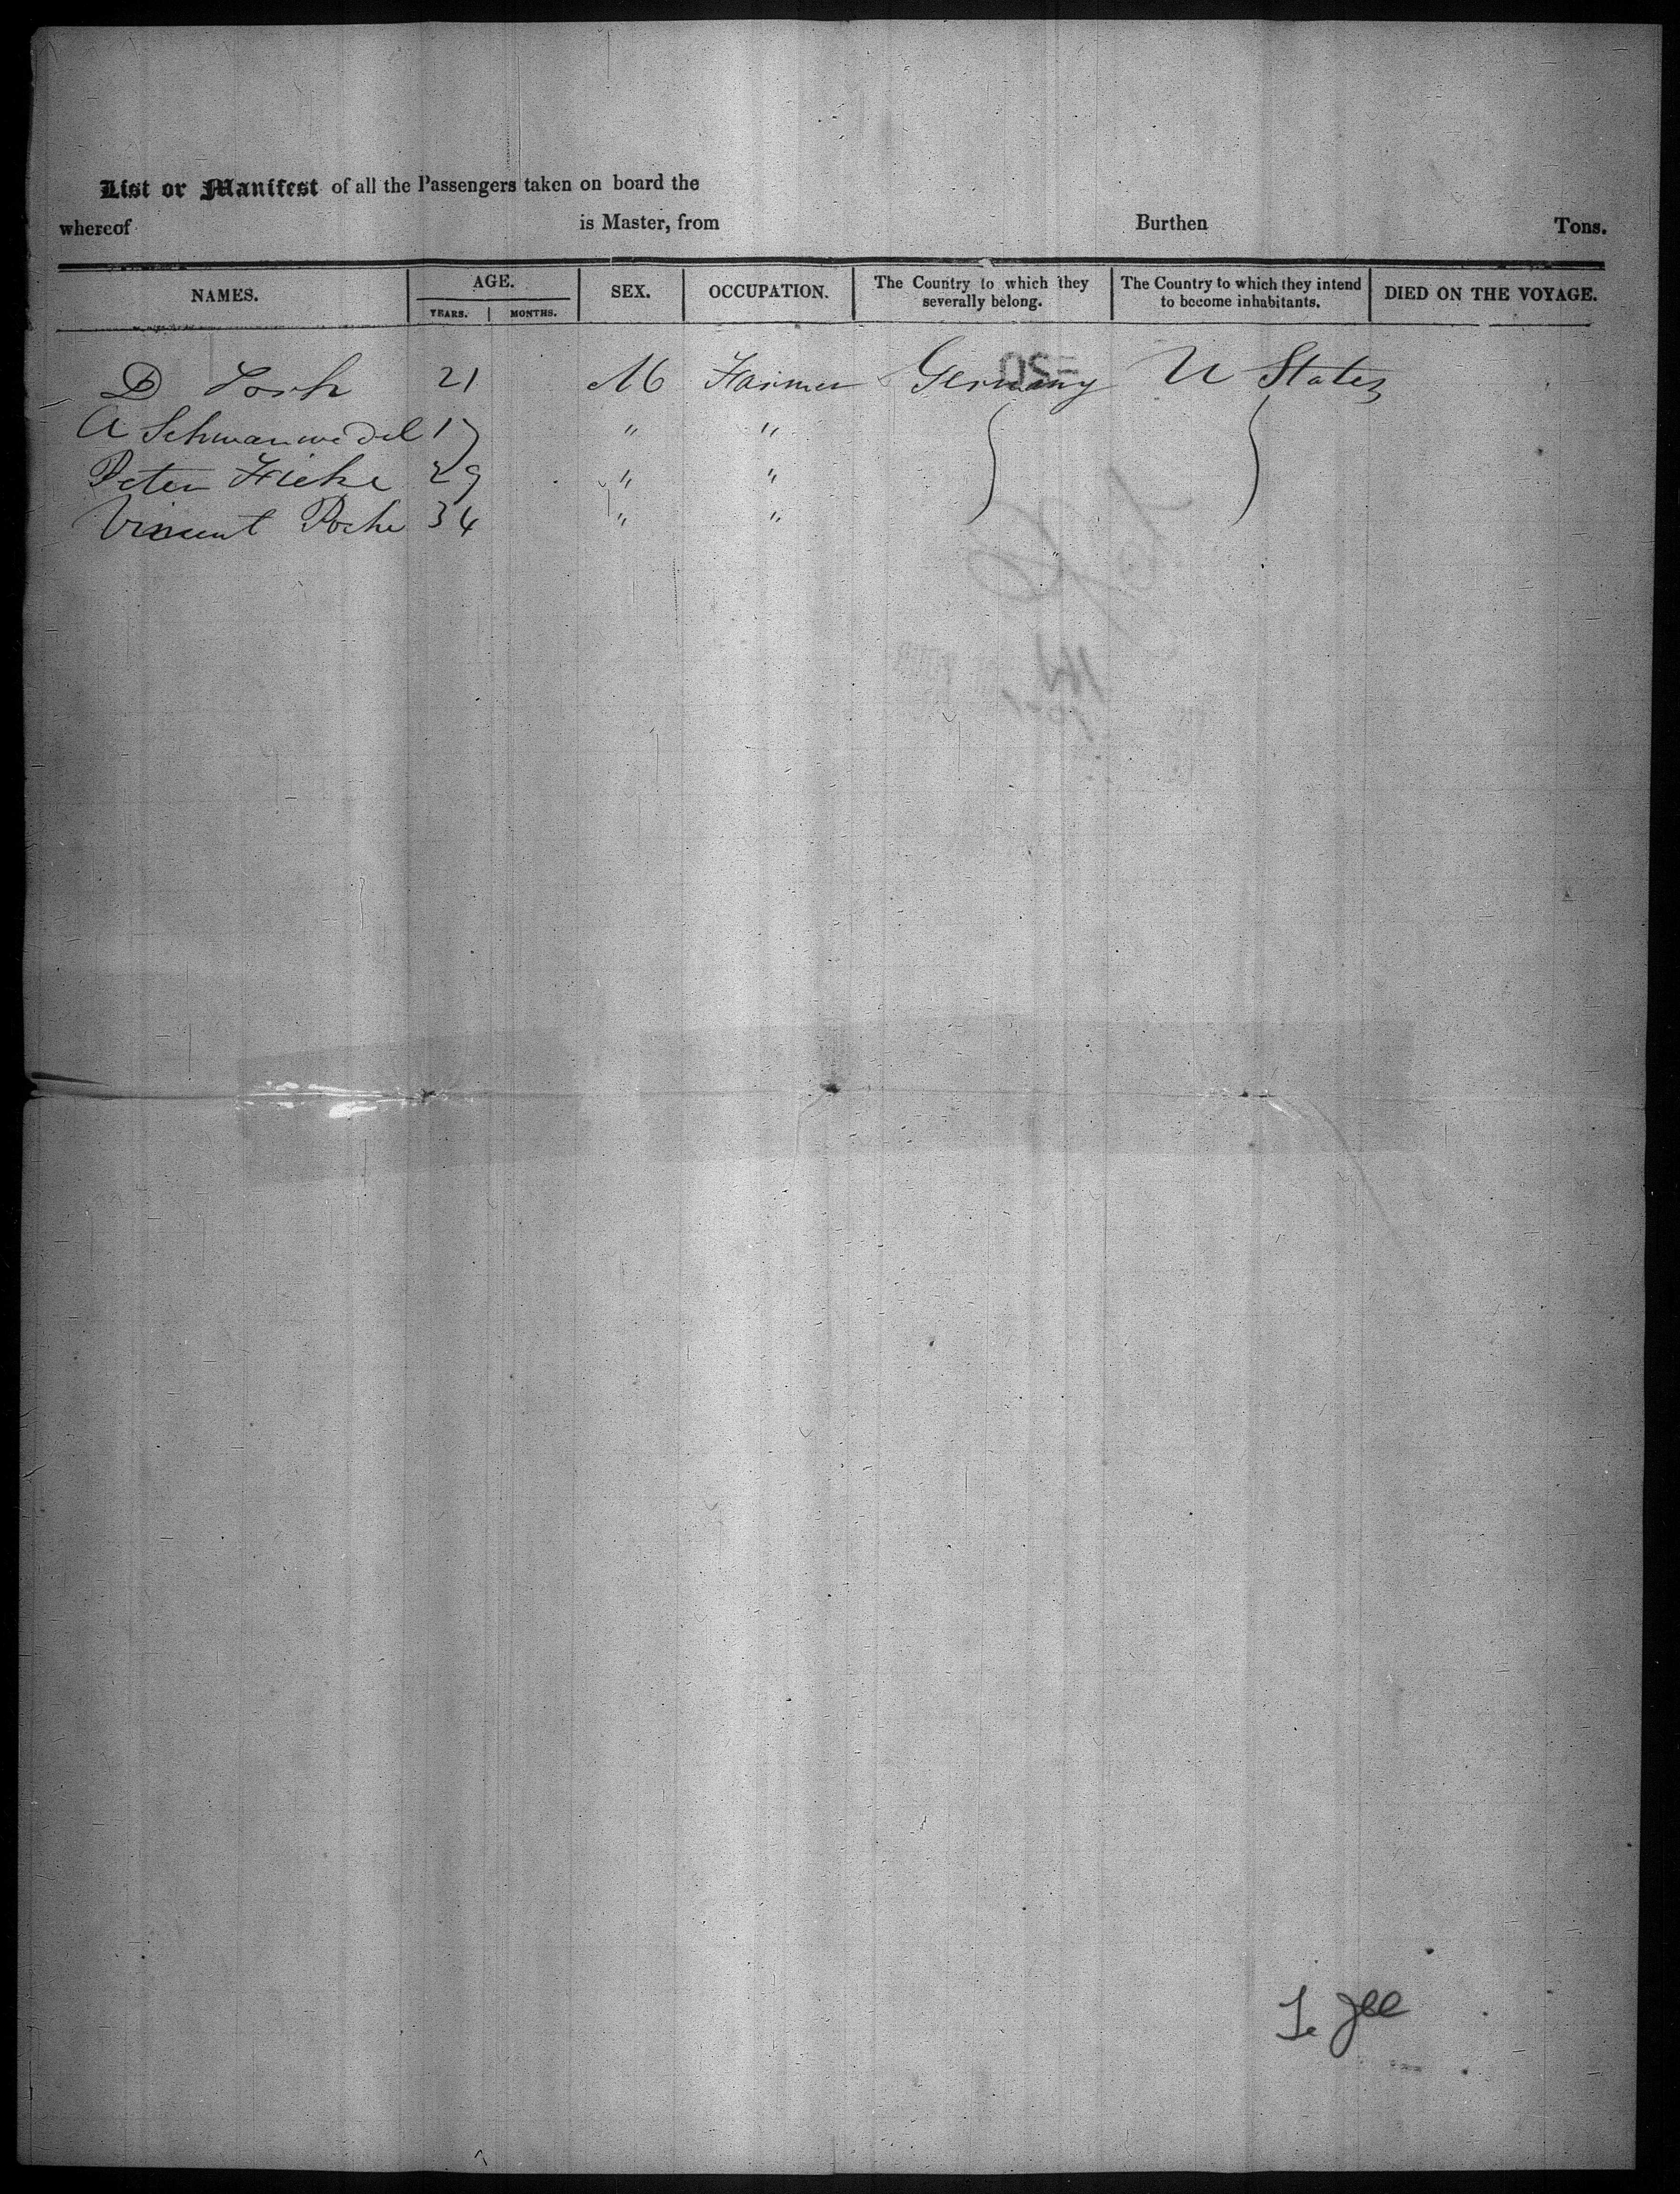 List or Manifest of all the Passengers taken on board the
whereof is Master, from Burthen Tons.
NAMES. AGE. SEX. OCCUPATION. The Country to which they severally belong. The Country to which they intend to become inhabitants. DIED ON THE VOYAGE.
YEARS. MONTHS.
D 21 M Farmer Germany U States
A Schwanwedel 17 " "
Peter Ficke 29 " "
Vincent Poche 34 " "